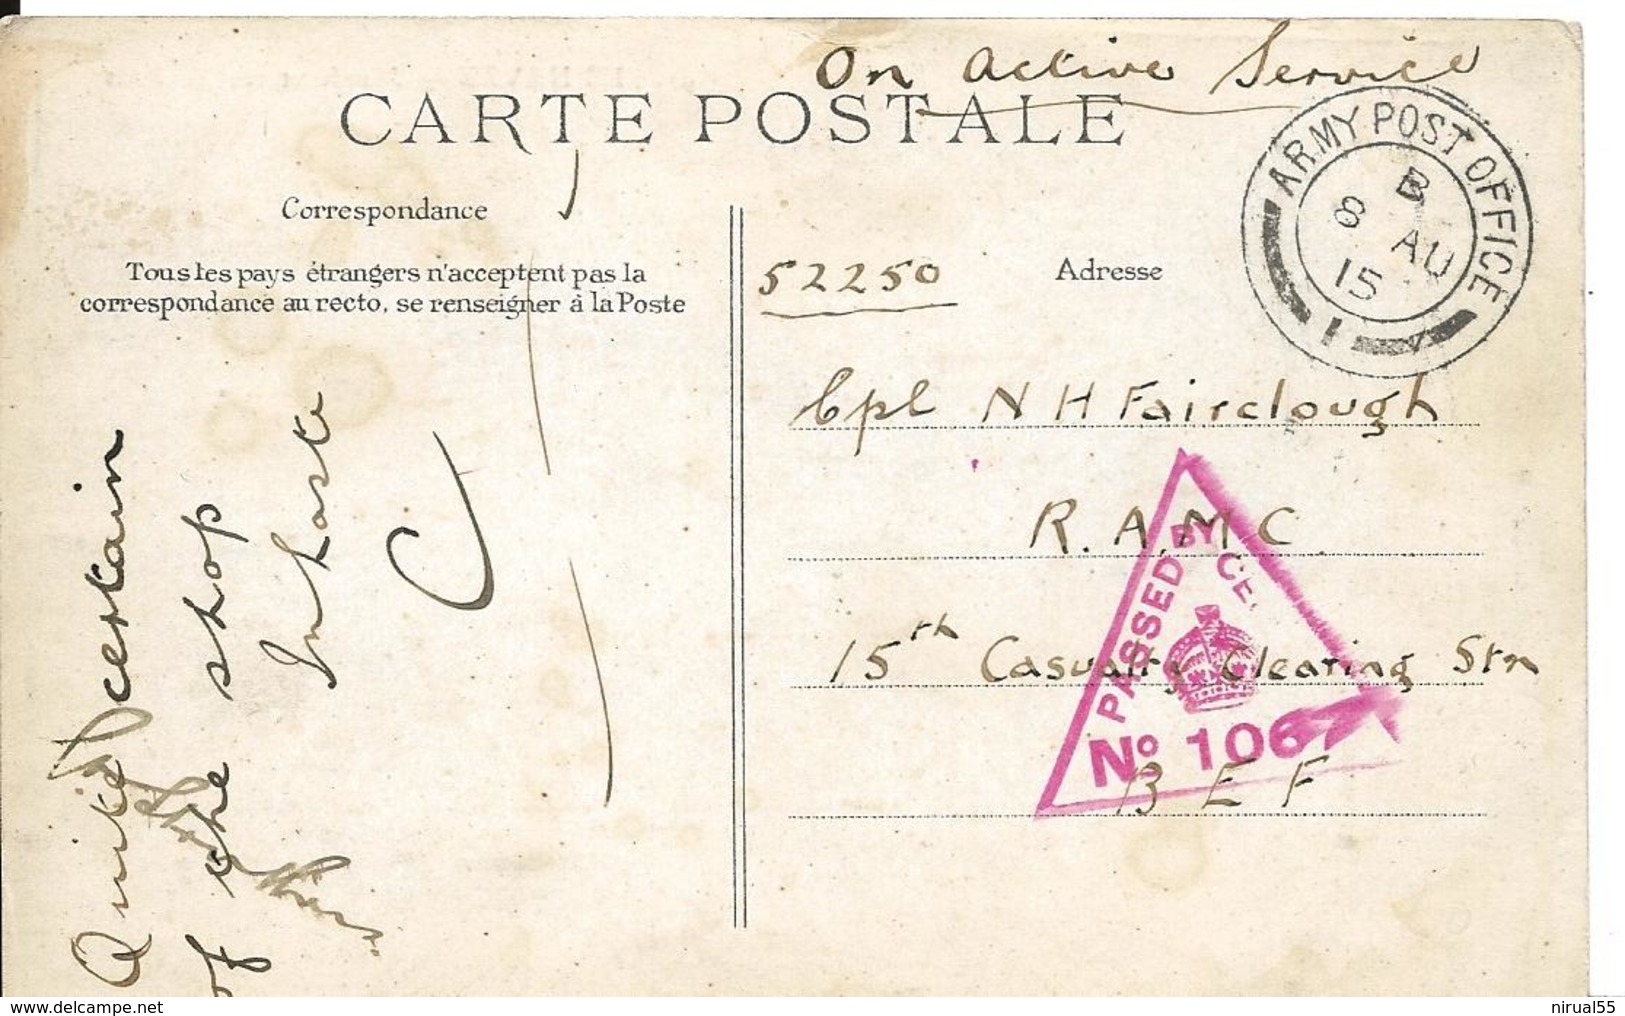 On Active Service
CARTE POSTALE
ARMY POST OFFICE
B
8 AU
15
1
Correspondance
Tous les pays étrangers n'acceptent pas la
correspondance au recto, se renseigner à la Poste
52250
Adresse
Cpl N H Fairclough
R.A.M.C.
15th Casualty Clearing Stn
B E F
PASSED BY CE
No 1067
Quite certain
of the shop
In haste
C
delcampe.net
nirual55